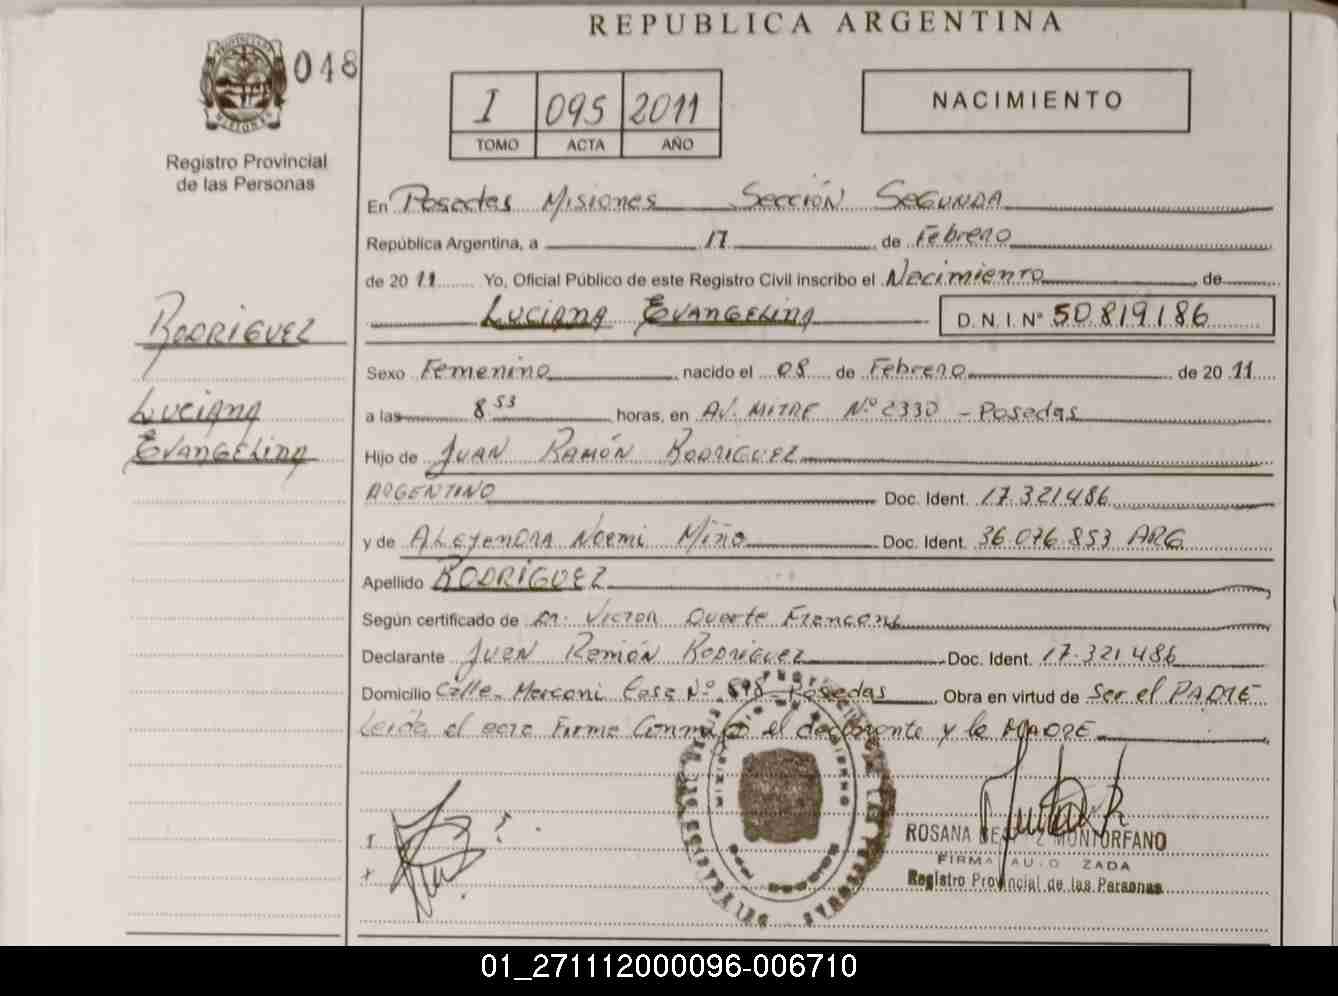 REPUBLICA ARGENTINA
048
Registro Provincial
de las Personas
I 095 2011
TOMO ACTA AÑO
NACIMIENTO
En Posadas Misiones Sección Segunda
República Argentina, a 17 de Febrero
de 2011 Yo, Oficial Público de este Registro Civil inscribo el Nacimiento de
Luciana Evangelina D. N. I. Nº 50.819.186
Rodriguez
Luciana
Evangelina
Sexo Femenino nacido el 08 de Febrero de 2011
a las 8 53 horas, en Av. Mitre Nº 2330 - Posadas
Hijo de Juan Ramón Rodriguez
Argentino Doc. Ident. 17.321.486
y de Alejandra Noemi Miño Doc. Ident. 36.076.853 ARG
Apellido Rodríguez
Según certificado de Dr. Victor Duarte
Declarante Juan Ramón Rodriguez Doc. Ident. 17.321.486
Domicilio Calle Marconi Casa Nº 898 Posadas Obra en virtud de Ser el PADRE
Leida el acta Firma Conmigo el declarante y la MADRE
ROSANA MONTORFANO
FIRMA AU O ZADA
Registro Provincial de las Personas
01_271112000096-006710